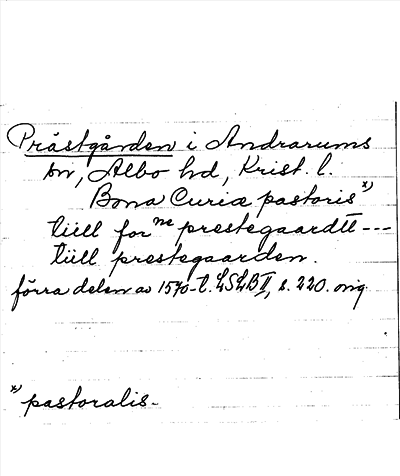 Prästgården i Andrarums
sn, Albo hd, Krist. l.
Bona Curiæ pastoris x)
tüll for ne prestegaardtt ---
tüll prestegaarden.
förra delen av 1570-t. LSLB II, s. 220. orig
x) pastoralis-